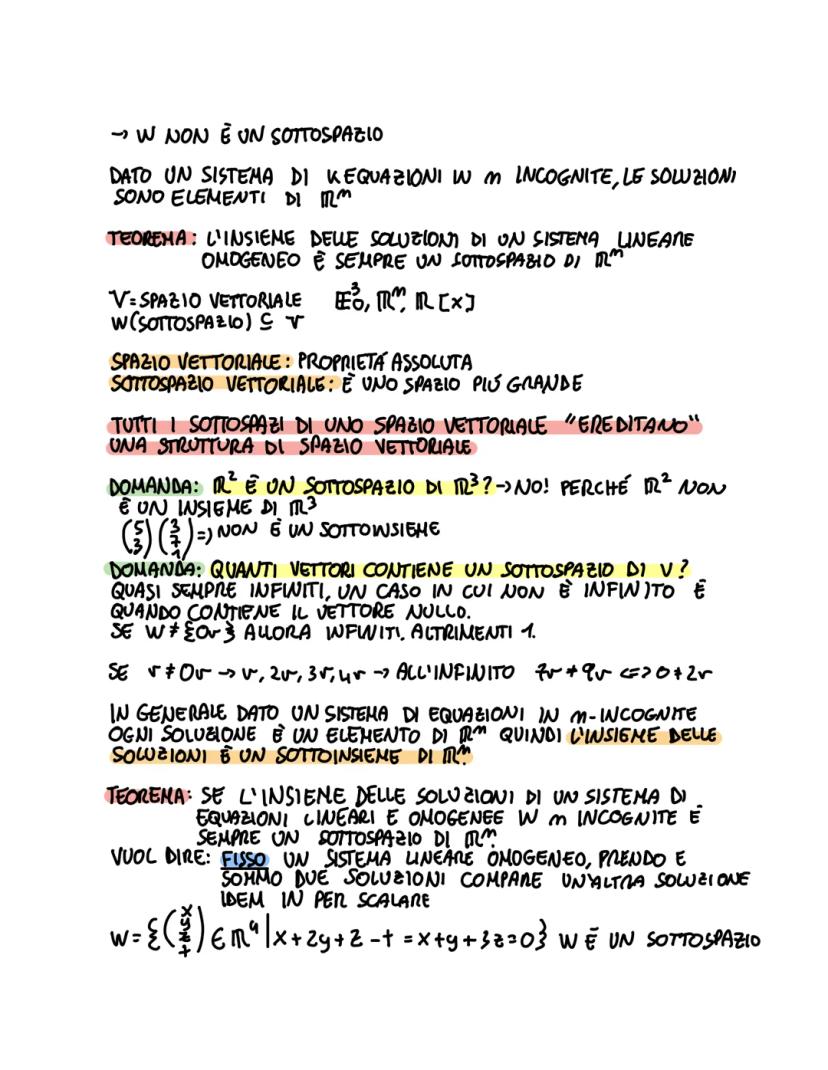 → W NON È UN SOTTOSPAZIO
DATO UN SISTEMA DI K EQUAZIONI IN m INCOGNITE, LE SOLUZIONI
SONO ELEMENTI DI ℝᵐ
TEOREMA: L'INSIEME DELLE SOLUZIONI DI UN SISTEMA LINEARE
OMOGENEO È SEMPRE UN SOTTOSPAZIO DI ℝᵐ
V = SPAZIO VETTORIALE 𝔼³₀, ℝᵐ, ℝ[x]
W(SOTTOSPAZIO) ⊆ V
SPAZIO VETTORIALE: PROPRIETÁ ASSOLUTA
SOTTOSPAZIO VETTORIALE: È UNO SPAZIO PIÚ GRANDE
TUTTI I SOTTOSPAZI DI UNO SPAZIO VETTORIALE "EREDITANO"
UNA STRUTTURA DI SPAZIO VETTORIALE
DOMANDA: ℝ² È UN SOTTOSPAZIO DI ℝ³? → NO! PERCHÉ ℝ² NON
È UN INSIEME DI ℝ³
(5 3) (3 7 1) => NON È UN SOTTOINSIEME
DOMANDA: QUANTI VETTORI CONTIENE UN SOTTOSPAZIO DI V?
QUASI SEMPRE INFINITI, UN CASO IN CUI NON È INFINITO È
QUANDO CONTIENE IL VETTORE NULLO.
SE W ≠ {0v} ALLORA INFINITI, ALTRIMENTI 1.
SE v ≠ 0v → v, 2v, 3v, 4v → ALL'INFINITO 7v ≠ 9v <=> 0 ≠ 2v
IN GENERALE DATO UN SISTEMA DI EQUAZIONI IN m-INCOGNITE
OGNI SOLUZIONE È UN ELEMENTO DI ℝᵐ QUINDI L'INSIEME DELLE
SOLUZIONI È UN SOTTOINSIEME DI ℝᵐ.
TEOREMA: SE L'INSIEME DELLE SOLUZIONI DI UN SISTEMA DI
EQUAZIONI LINEARI E OMOGENEE IN m INCOGNITE È
SEMPRE UN SOTTOSPAZIO DI ℝᵐ.
VUOL DIRE: FISSO UN SISTEMA LINEARE OMOGENEO, PRENDO E
SOMMO DUE SOLUZIONI COMPARE UN'ALTRA SOLUZIONE
IDEM IN PER SCALARE
W = {(x y z t) ∈ ℝ⁴ | x + 2y + z - t = x + y + 3z = 0} W È UN SOTTOSPAZIO